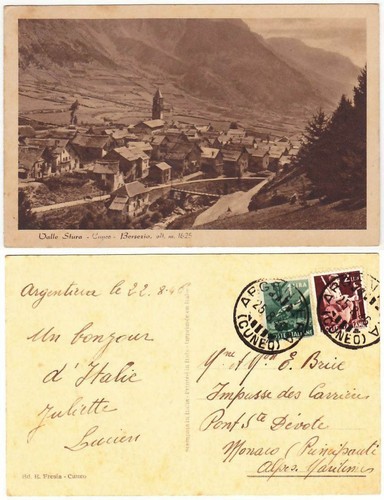 Valle Stura - Cuneo - Bersezio, alt. m. 1625
Argentera le 22-8-46
Un bonjour
d'Italie
Juliette
Lucien
ARGENTERA
(CUNEO)
LIRA
POSTE ITALIANE
2 LIRE
(CUNEO)
Mme et Mr E. Brie
Impasse des Carrières
Pont Ste Dévote
Monaco (Principauté
Alpes Maritimes
Cuneo